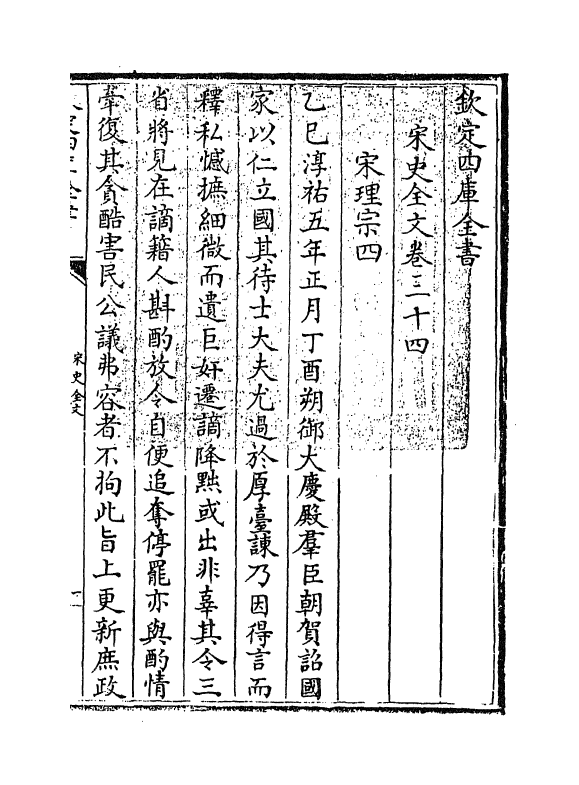 欽定四庫全書
宋史全文卷三十四
宋理宗四
乙巳淳祐五年正月丁酉朔御大慶殿羣臣朝賀詔國
家以仁立國其待士大夫尤過於厚臺諌乃因得言而
釋私憾摭細微而遺巨奸遷謫降黜或出非辜其令三
省將見在謫籍人斟酌放令自便追奪停罷亦與酌情
牽復其貪酷害民公議弗容者不拘此旨上更新庶政
宋史全文